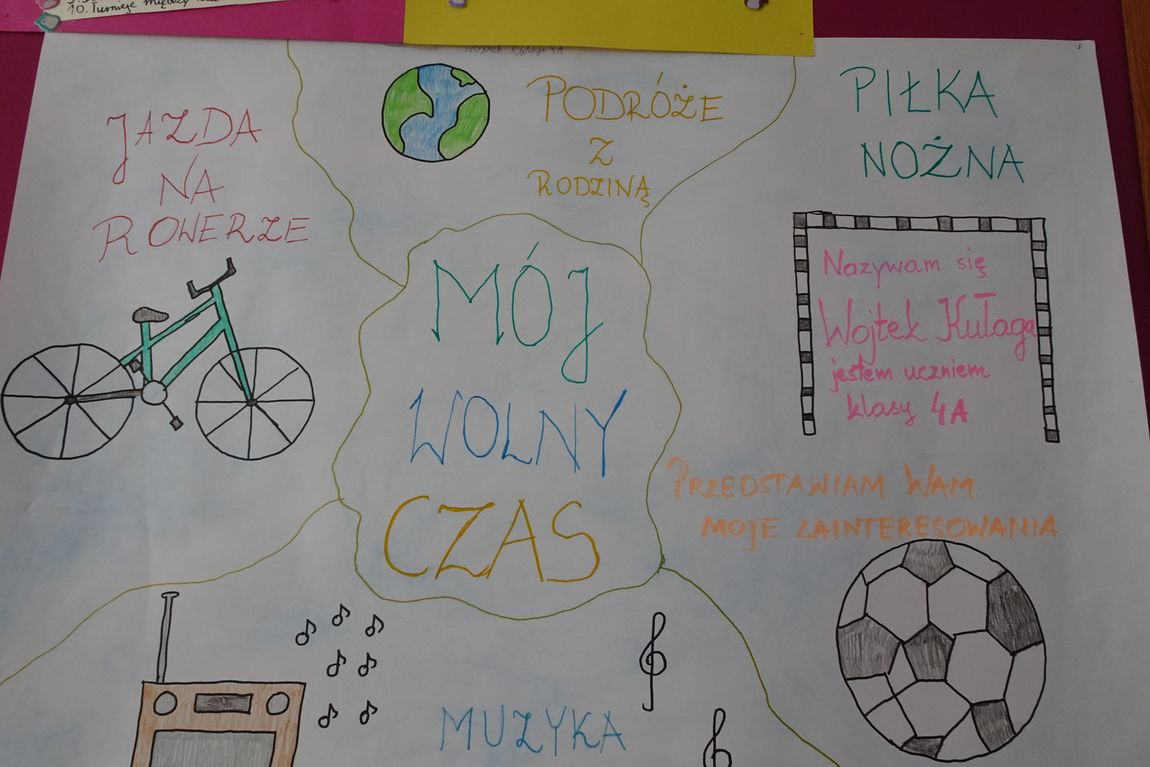 10. Turnieje między
JAZDA
NA
ROWERZE
PODRÓŻE
Z
RODZINĄ
PIŁKA
NOŻNA
Nazywam się
Wojtek Kułaga
jestem uczniem
klasy 4A
MÓJ
WOLNY
CZAS
PRZEDSTAWIAM WAM
MOJE ZAINTERESOWANIA
MUZYKA